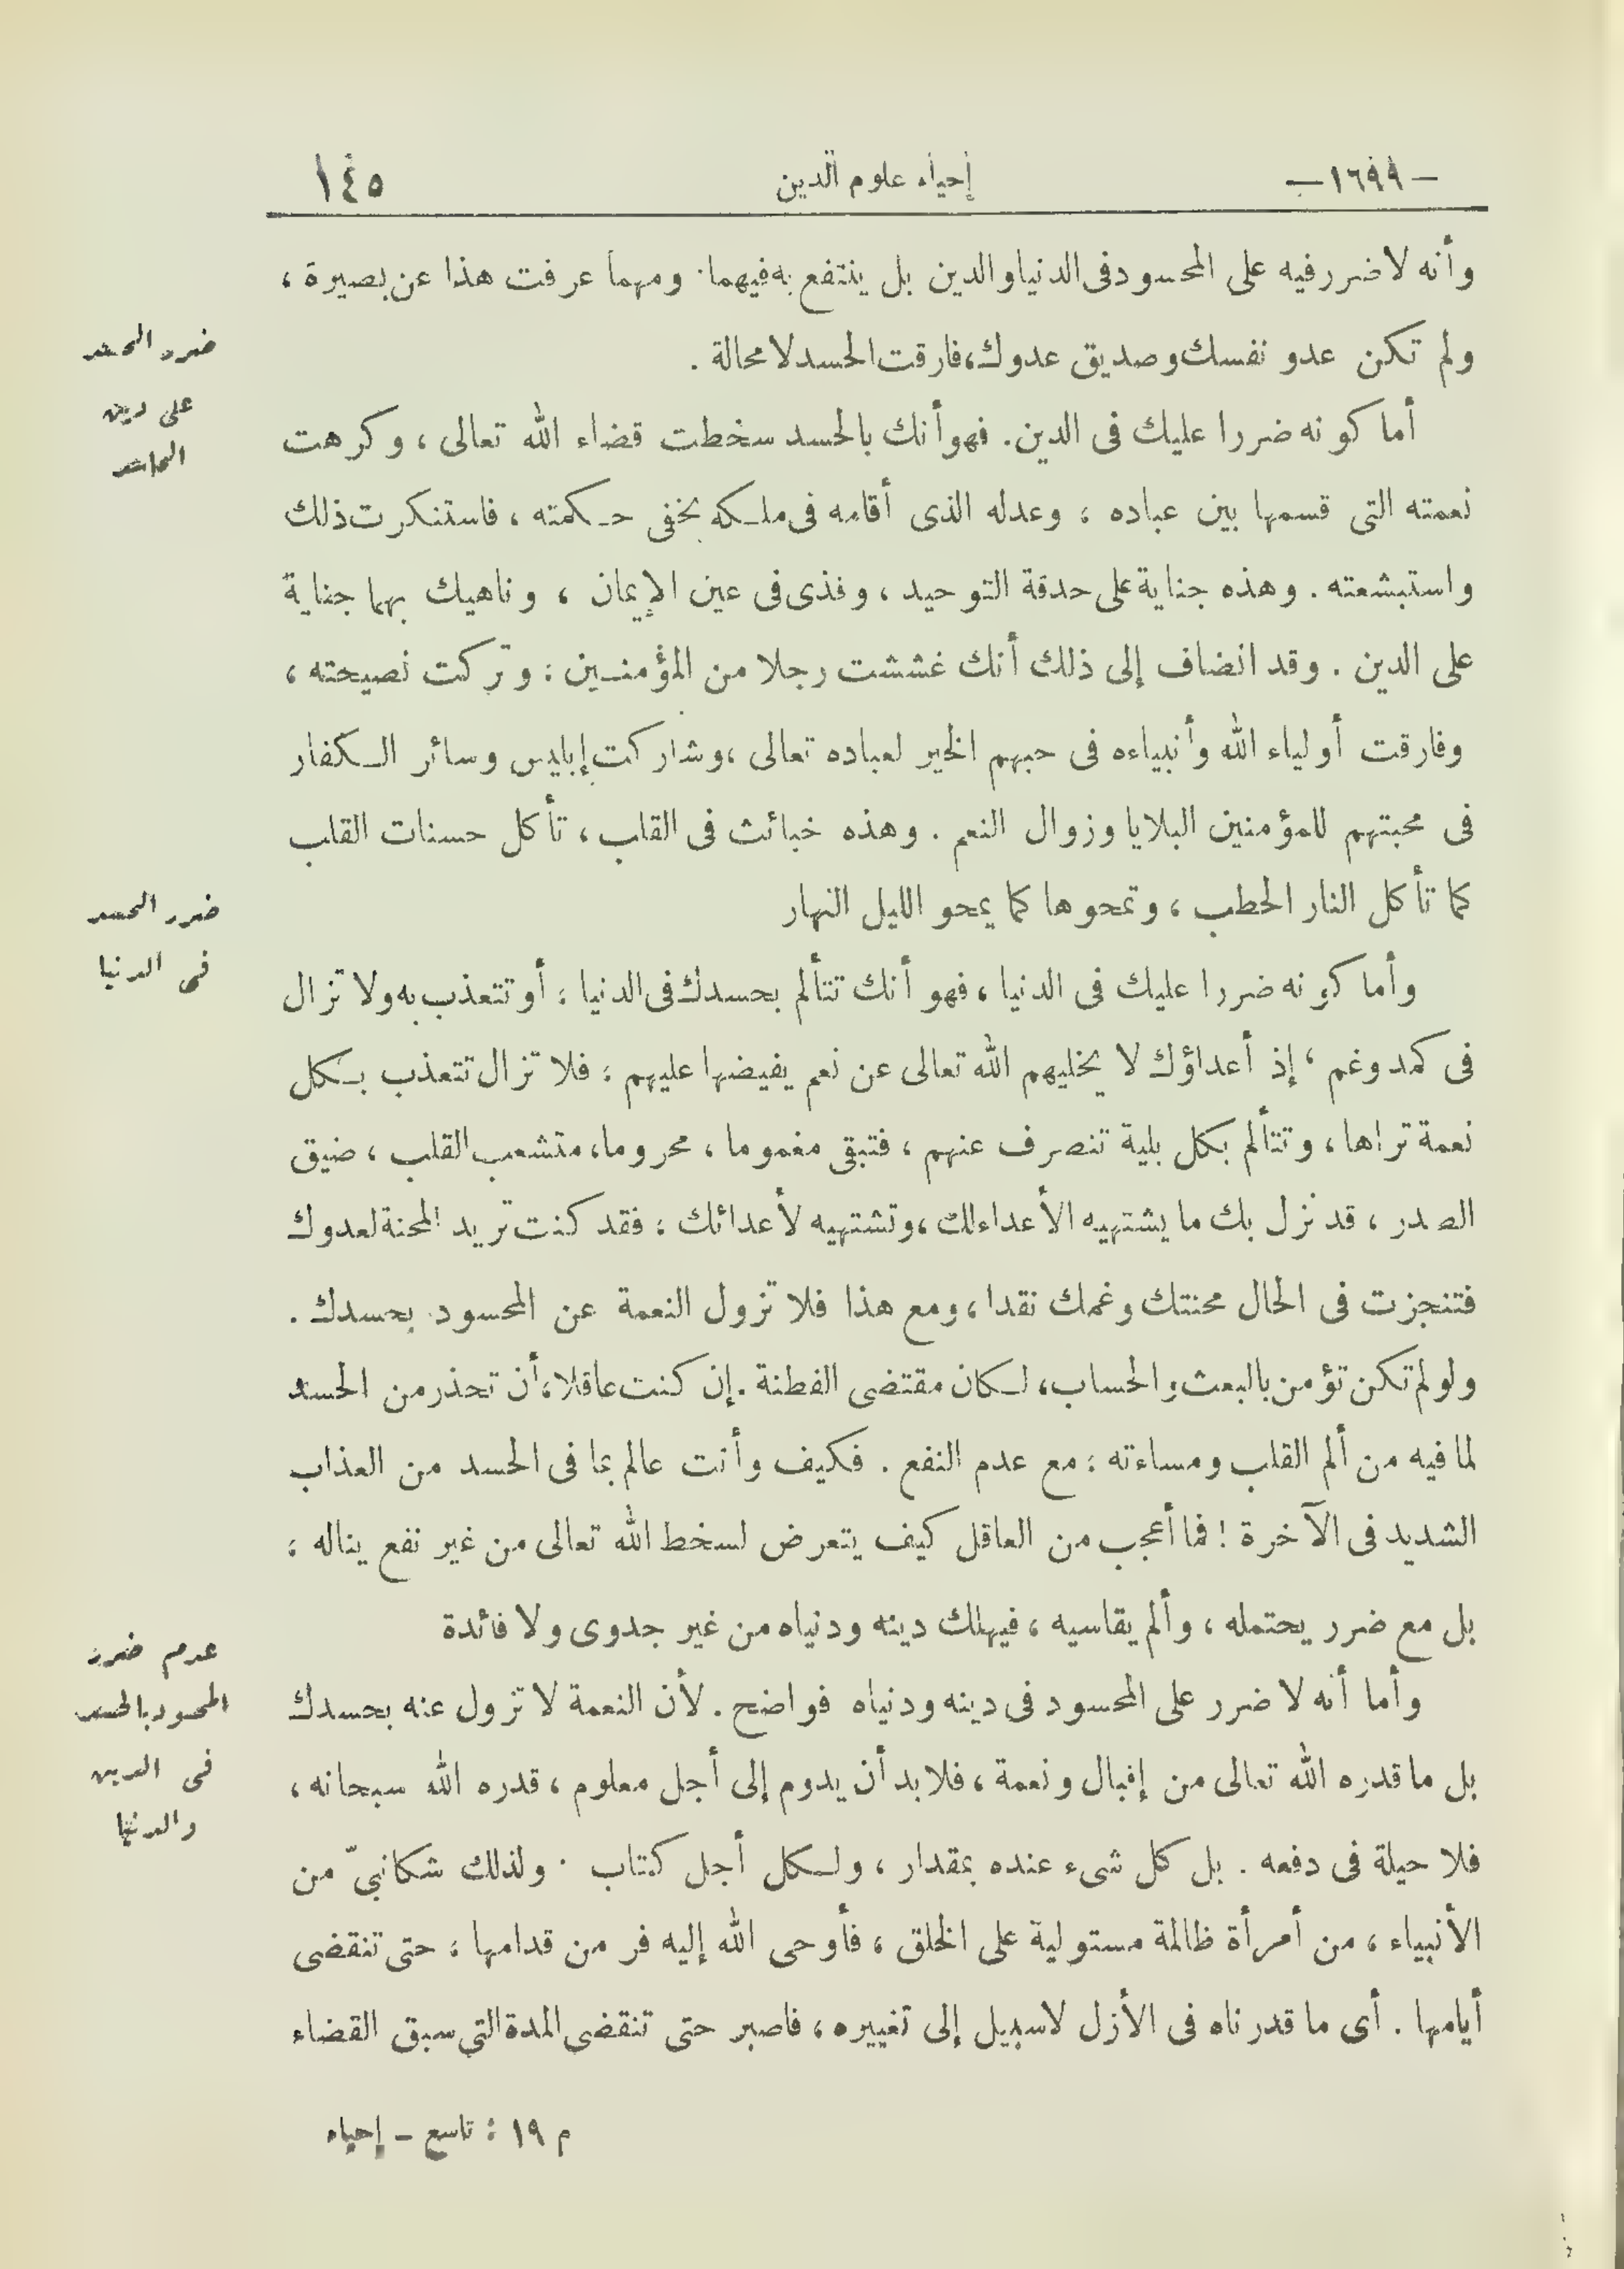 — ١٦٩٩ — إحياء علوم الدين ١٤٥
وأنه لاضررفيه على المحسود فى الدنيا والدين بل ينتفع به فيهما . ومهما عرفت هذا عن بصيرة ،
ولم تكن عدو نفسك وصديق عدوك ، فارقت الحسد لا محالة .
ضرر الحسد
على دين
الحاسد
أما كونه ضررا عليك فى الدين . فهو أنك بالحسد سخطت قضاء الله تعالى ، وكرهت
نعمته التى قسمها بين عباده ، وعدله الذى أقامه فى ملكه بخفى حكمته ، فاستنكرت ذلك
واستبشعته . وهذه جناية على حدقة التوحيد ، وقذى فى عين الإيمان ، وناهيك بهما جناية
على الدين . وقد انضاف إلى ذلك أنك غششت رجلا من المؤمنين ، وتركت نصيحته ،
وفارقت أولياء الله وأنبياءه فى حبهم الخير لعباده تعالى ، وشاركت إبليس وسائر الكفار
فى محبتهم للمؤمنين البلايا وزوال النعم . وهذه خبائث فى القلب ، تأكل حسنات القلب
كما تأكل النار الحطب ، وتمحوها كما يمحو الليل النهار
ضرر الحسد
فى الدنيا
وأما كونه ضررا عليك فى الدنيا ، فهو أنك تتألم بحسدك فى الدنيا ، أو تتعذب به ولا تزال
فى كمد وغم ، إذ أعداؤك لا يخليهم الله تعالى عن نعم يفيضها عليهم ، فلا تزال تتعذب بكل
نعمة تراها ، وتتألم بكل بلية تنصرف عنهم ، فتبقى مغموما ، محروما ، متشعب القلب ، ضيق
الصدر ، قد نزل بك ما يشتهيه الأعداء لك ، وتشتهيه لأعدائك ، فقد كنت تريد المحنة لعدوك
فتنجزت فى الحال محنتك وغمك نقدا ، ومع هذا فلا تزول النعمة عن المحسود بحسدك .
ولو لم تكن تؤمن بالبعث والحساب ، لكان مقتضى الفطنة . إن كنت عاقلا ، أن تحذر من الحسد
لما فيه من ألم القلب ومساءته ، مع عدم النفع . فكيف وأنت عالم بما فى الحسد من العذاب
الشديد فى الآخرة ! فما أعجب من العاقل كيف يتعرض لسخط الله تعالى من غير نفع يناله ،
بل مع ضرر يحتمله ، وألم يقاسيه ، فيهلك دينه ودنياه من غير جدوى ولا فائدة
عدم ضرر
المحسود بالحسد
فى الدين
والدنيا
وأما أنه لا ضرر على المحسود فى دينه ودنياه فواضح . لأن النعمة لا تزول عنه بحسدك
بل ما قدره الله تعالى من إقبال ونعمة ، فلا بد أن يدوم إلى أجل معلوم ، قدره الله سبحانه ،
فلا حيلة فى دفعه . بل كل شىء عنده بمقدار ، ولكل أجل كتاب . ولذلك شكا نبىّ من
الأنبياء ، من أمرأة ظالمة مستولية على الخلق ، فأوحى الله إليه فر من قدامها ، حتى تنقضى
أيامها . أى ما قدرناه فى الأزل لا سبيل إلى تغييره ، فاصبر حتى تنقضى المدة التى سبق القضاء
م ١٩ : تاسع – إحياء